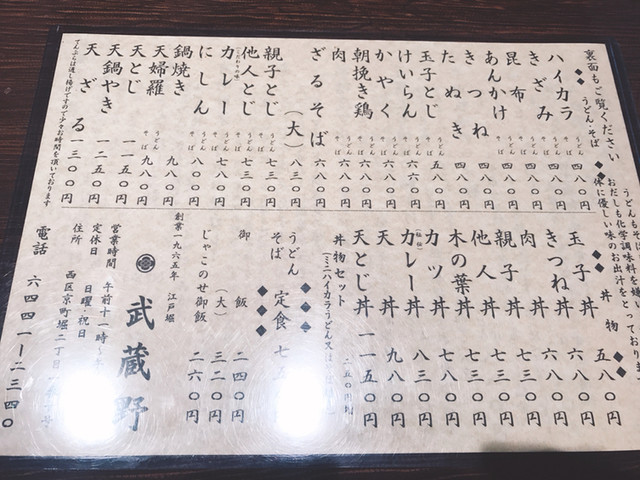 裏面もご覧ください
◆◆ うどん・そば ◆◆
ハイカラ うどん そば 四三〇円
きざみ うどん そば 四三〇円
昆布 うどん そば 四八〇円
あんかけ うどん そば 四八〇円
きつね うどん そば 四八〇円
たぬき そば
玉子とじ うどん そば
けいらん うどん そば
かやく うどん そば
朝挽き鶏 うどん そば 六八〇円
肉 うどん そば 六八〇円
ざるそば 六八〇円
(大) 八三〇円
親子とじ うどん そば 七三〇円
他人とじ うどん そば 七三〇円
カレー うどん そば 七八〇円
にしん うどん そば 八〇〇円
鍋焼き うどん 九八〇円
天婦羅 うどん そば 九八〇円
天とじ うどん そば 一一五〇円
天鍋やき 一二五〇円
天ざる 一三〇〇円
てんぷらは逐一揚げてますので少々お時間を頂いております
おだしも化学調味料を嫌
体に優しい味のお出汁をとっており
◆◆ 丼物 ◆◆
玉子丼 五八〇円
きつね丼 六八〇円
肉丼 六八〇円
親子丼 七三〇円
他人丼 七三〇円
木の葉丼 七八〇円
カツ丼 八三〇円
カレー丼 八三〇円
天丼 九八〇円
天とじ丼 一一五〇円
丼物セット
(ミニハイカラうどん又は
二五〇円増
◆◆◆
うどん そば 定食 七
◆◆◆
御飯 二四〇円
(大) 三二〇円
じゃこのせ御飯 二六〇円
創業一九六五年 江戸堀
武蔵野
営業時間 午前十一時~午
定休日 日曜・祝日
住所 西区京町堀二丁目
電話 六四四一―二三四〇